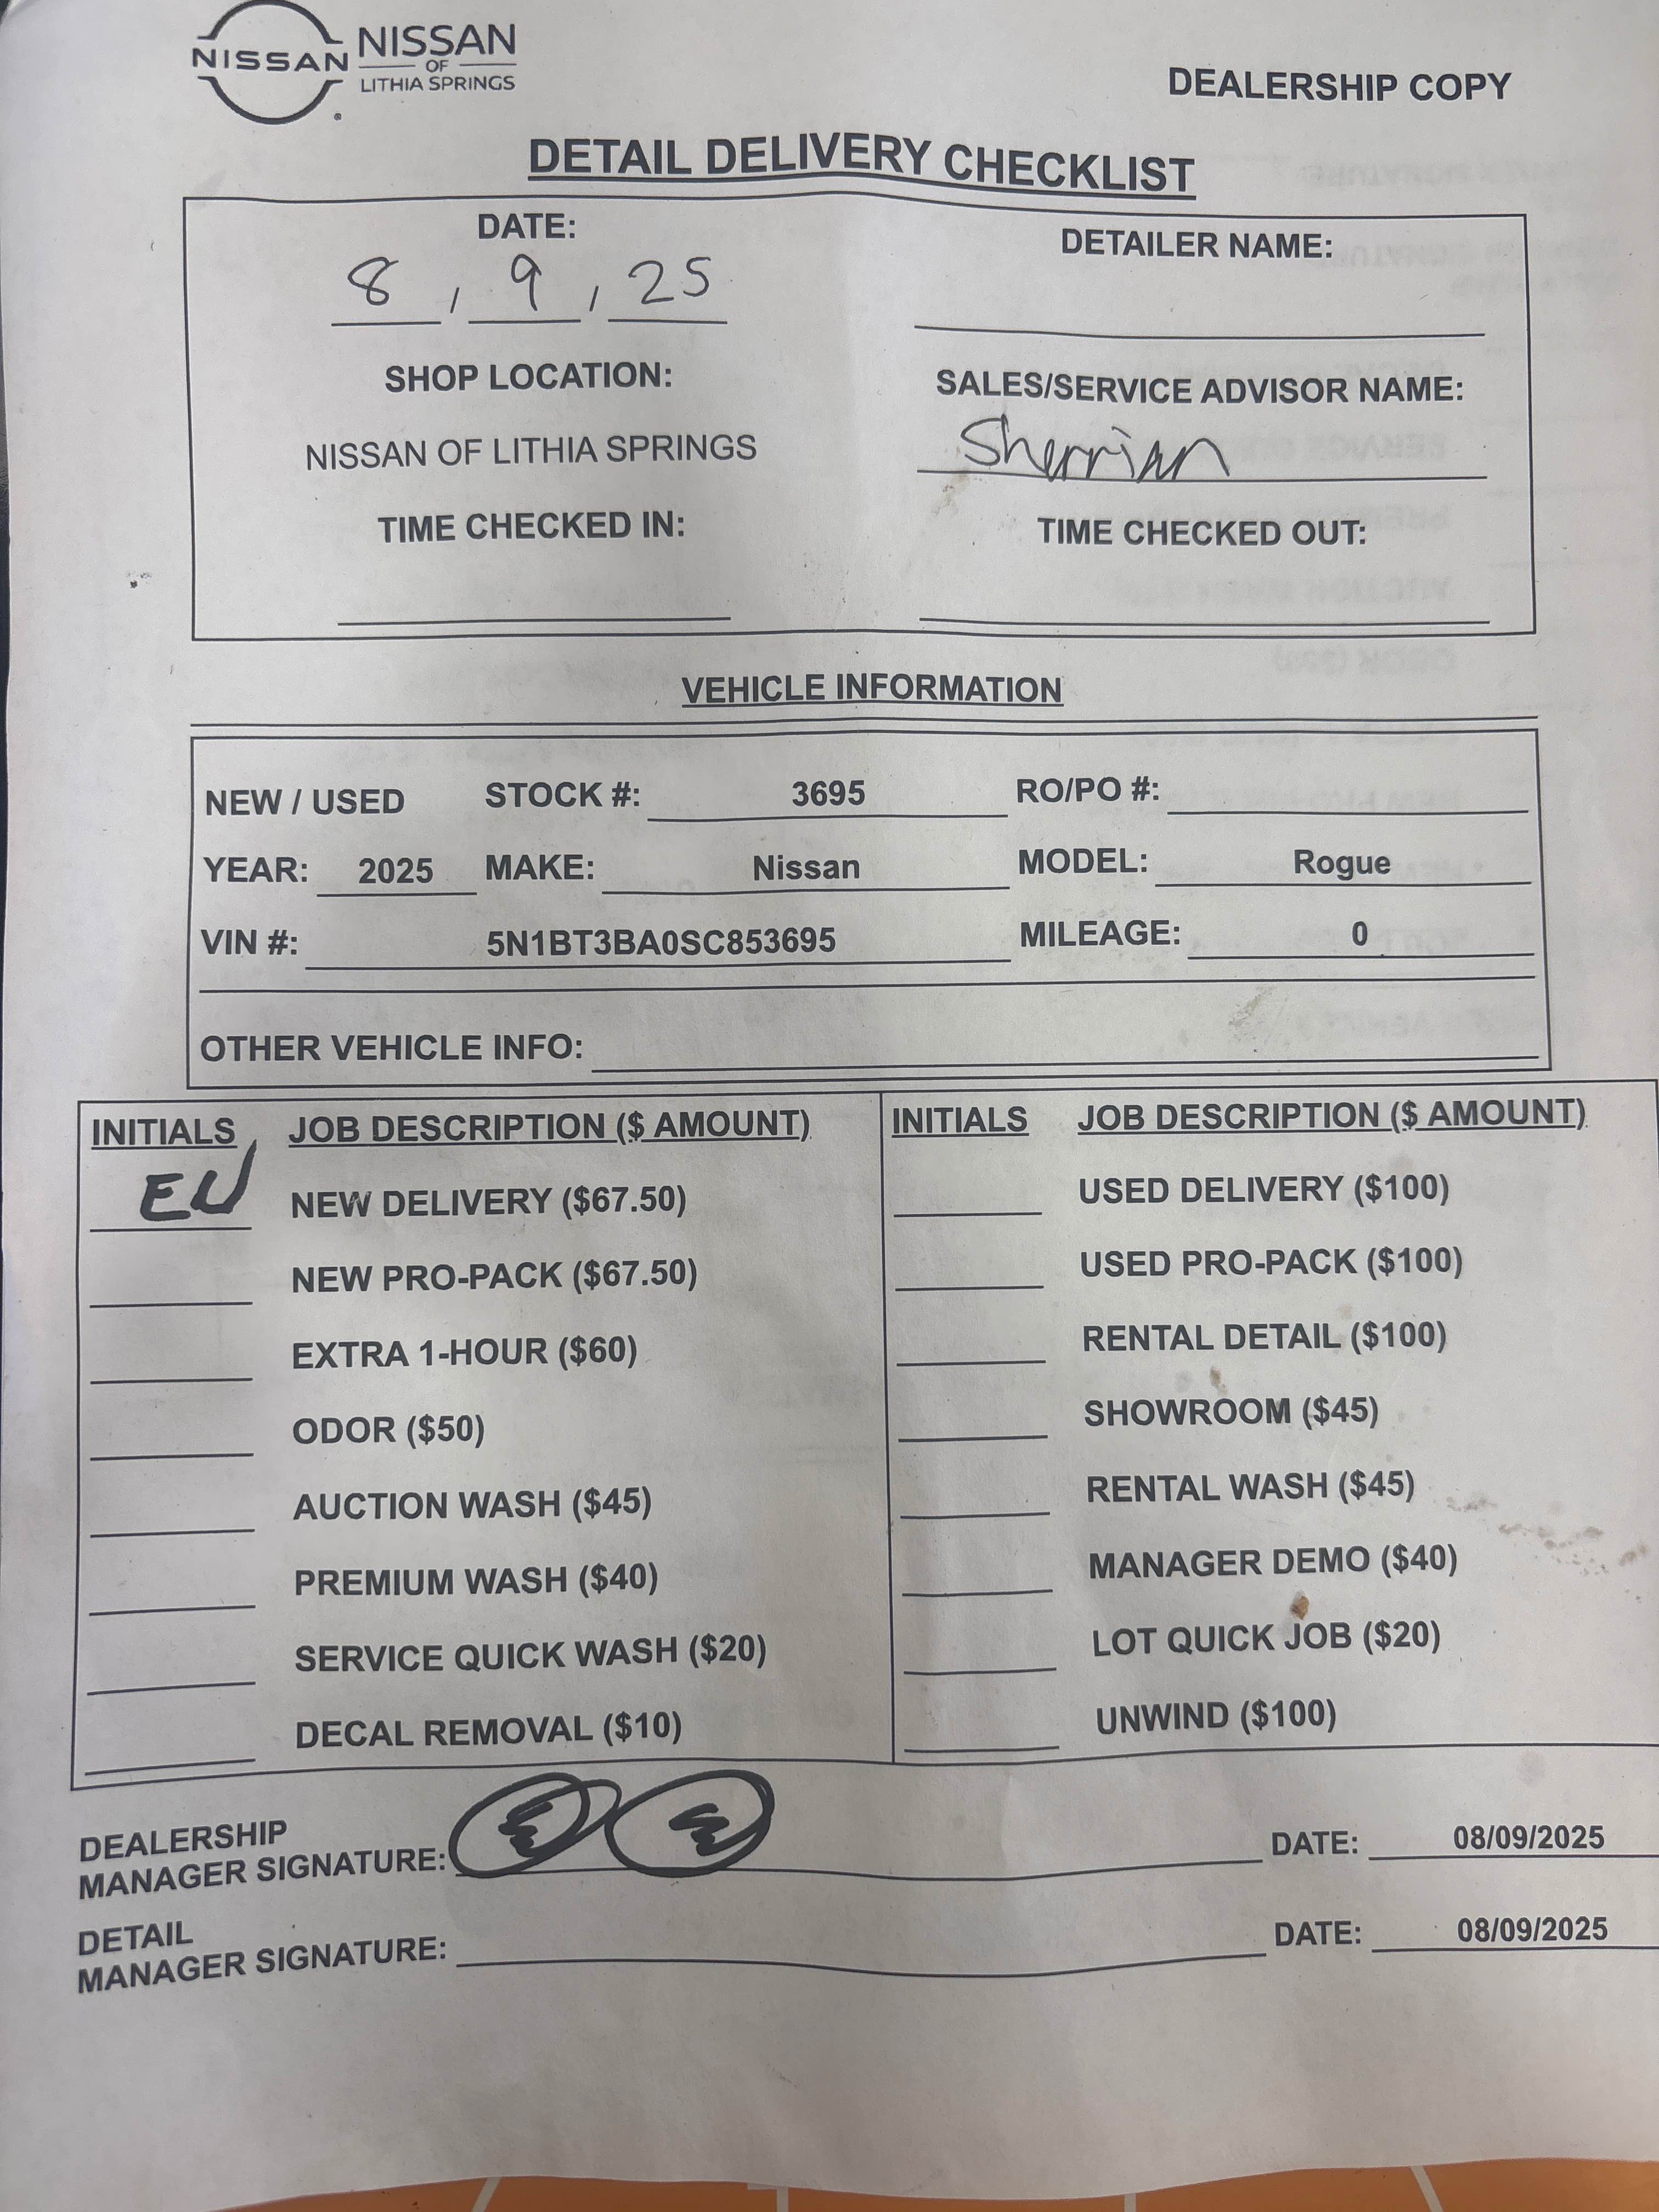 NISSAN
NISSAN
OF
LITHIA SPRINGS
DEALERSHIP COPY
DETAIL DELIVERY CHECKLIST
DATE:
8 , 9 , 25
DETAILER NAME:
SHOP LOCATION:
NISSAN OF LITHIA SPRINGS
SALES/SERVICE ADVISOR NAME:
Sherrian
TIME CHECKED IN:
TIME CHECKED OUT:
VEHICLE INFORMATION
NEW / USED STOCK #: 3695 RO/PO #:
YEAR: 2025 MAKE: Nissan MODEL: Rogue
VIN #: 5N1BT3BA0SC853695 MILEAGE: 0
OTHER VEHICLE INFO:
INITIALS JOB DESCRIPTION ($ AMOUNT)
EU NEW DELIVERY ($67.50)
NEW PRO-PACK ($67.50)
EXTRA 1-HOUR ($60)
ODOR ($50)
AUCTION WASH ($45)
PREMIUM WASH ($40)
SERVICE QUICK WASH ($20)
DECAL REMOVAL ($10)
INITIALS JOB DESCRIPTION ($ AMOUNT)
USED DELIVERY ($100)
USED PRO-PACK ($100)
RENTAL DETAIL ($100)
SHOWROOM ($45)
RENTAL WASH ($45)
MANAGER DEMO ($40)
LOT QUICK JOB ($20)
UNWIND ($100)
DEALERSHIP
MANAGER SIGNATURE: DATE: 08/09/2025
DETAIL
MANAGER SIGNATURE: DATE: 08/09/2025